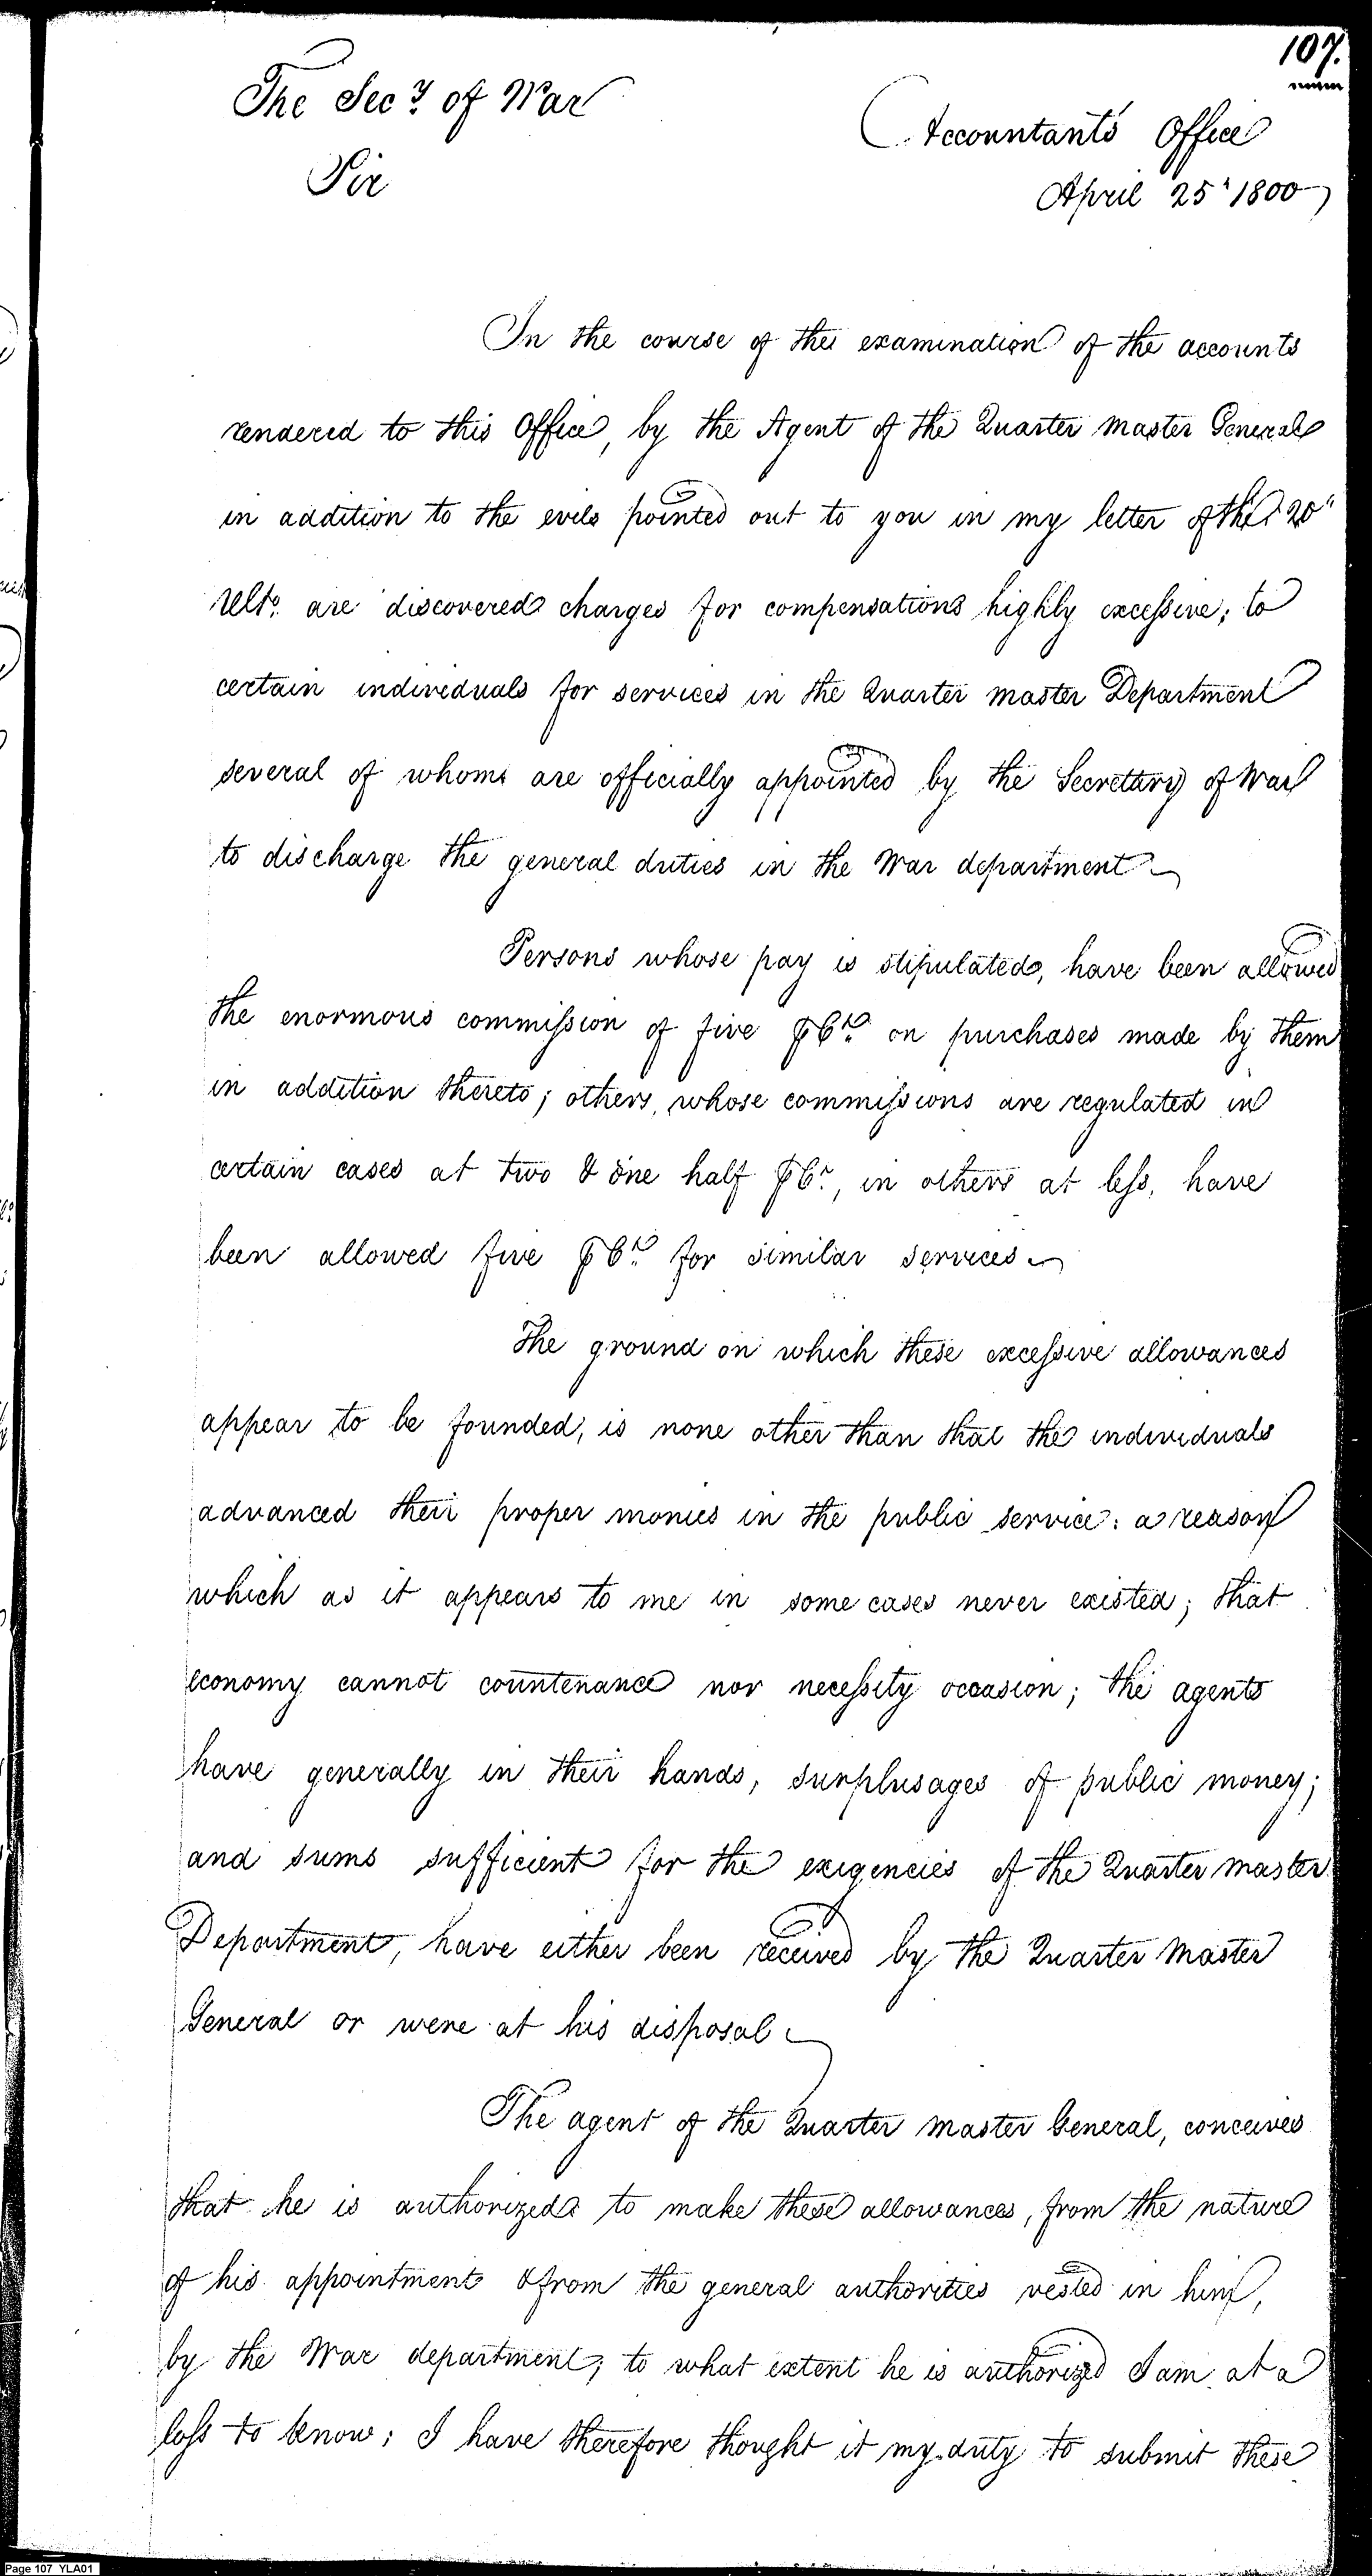 107.
The Secy of War
Accountants Office
Sir
April 25" 1800
In the course of the examination of the accounts
rendered to this Office, by the Agent of the Quarter master General
in addition to the evils pointed out to you in my letter of the 20"
Ulto. are discovered charges for compensations highly excessive; to
certain individuals for services in the Quarter master Department
several of whom are officially appointed by the Secretary of War
to discharge the general duties in the War department
Persons whose pay is stipulated, have been allowed
the enormous commission of five ⅌ Ct. on purchases made by them
in addition thereto; others, whose commissions are regulated in
certain cases at two & one half ⅌ Ct, in others at less, have
been allowed five ⅌ Ct. for similar services
The ground on which these excessive allowances
appear to be founded, is none other than that the individuals
advanced their proper monies in the public service: a reason
which as it appears to me in some cases never existed; that
economy cannot countenance nor necessity occasion; the agents
have generally in their hands, surplusages of public money;
and sums sufficient for the exigencies of the Quarter master
Department, have either been received by the Quarter Master
General or were at his disposal
The agent of the Quarter master General, conceives
that he is authorized to make these allowances, from the nature
of his appointment & from the general authorities vested in him,
by the War department; to what extent he is authorized I am at a
loss to know; I have therefore thought it my duty to submit these
Page 107 YLA01